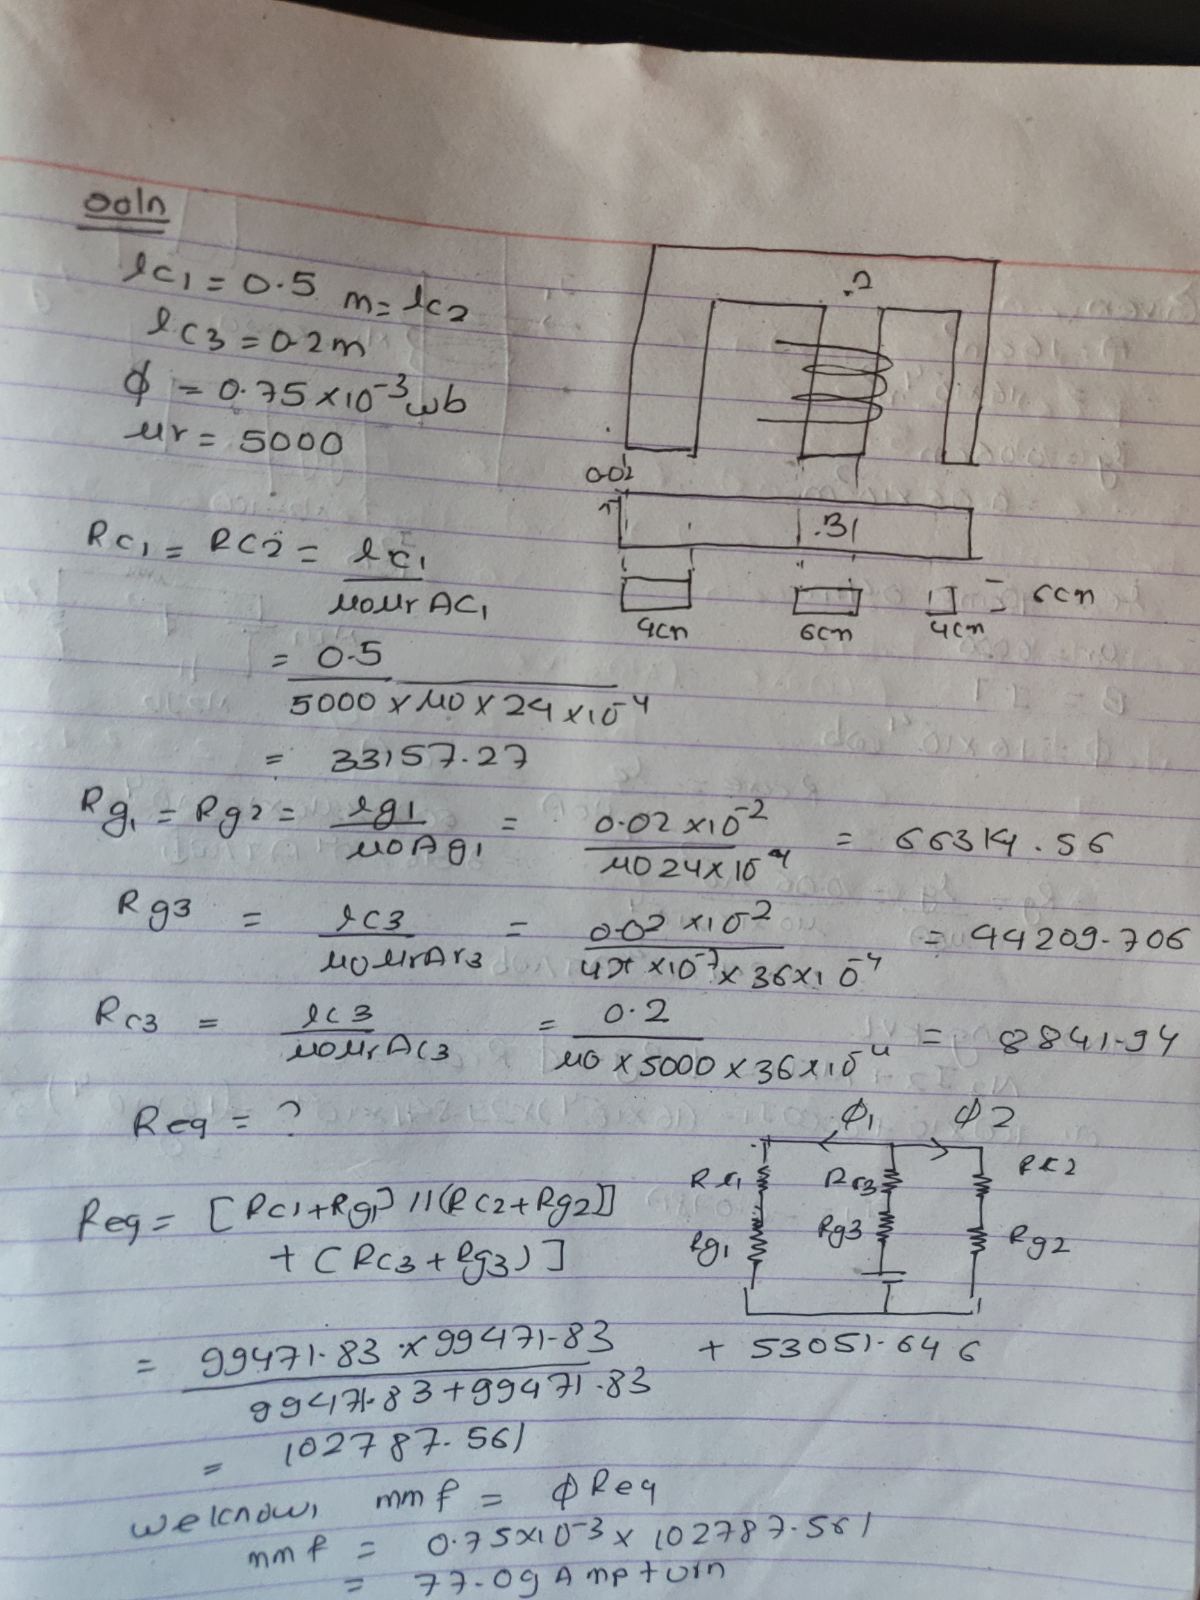 soln
lc1 = 0.5 m = lc2
lc3 = 0.2m
ϕ = 0.75 × 10^-3 wb
μr = 5000
.2
0.02
.31
4cm
6cm
4cm
6cm
Rc1 = RC2 = lc1 / μoμr AC1
= 0.5 / 5000 × μo × 24 × 10^-4
= 33157.27
Rg1 = Rg2 = lg1 / μoAg1 = 0.02 × 10^-2 / μo 24 × 10^-4 = 66314.56
Rg3 = lc3 / μoμrAr3 = 0.02 × 10^-2 / 4π × 10^-7 × 36 × 10^-4 = 44209.706
Rc3 = lc3 / μoμrAc3 = 0.2 / μo × 5000 × 36 × 10^-4 = 8841.94
Req = ?
ϕ1 ϕ2
Rc1 Rc3 Rc2
Rg1 Rg3 Rg2
Req = [Rc1 + Rg1) // (Rc2 + Rg2)]
+ (Rc3 + Rg3)]
= 99471.83 × 99471.83 / 99471.83 + 99471.83 + 53051.646
= 102787.561
we know, mmf = ϕReq
mmf = 0.75 × 10^-3 × 102787.561
= 77.09 Amp turn